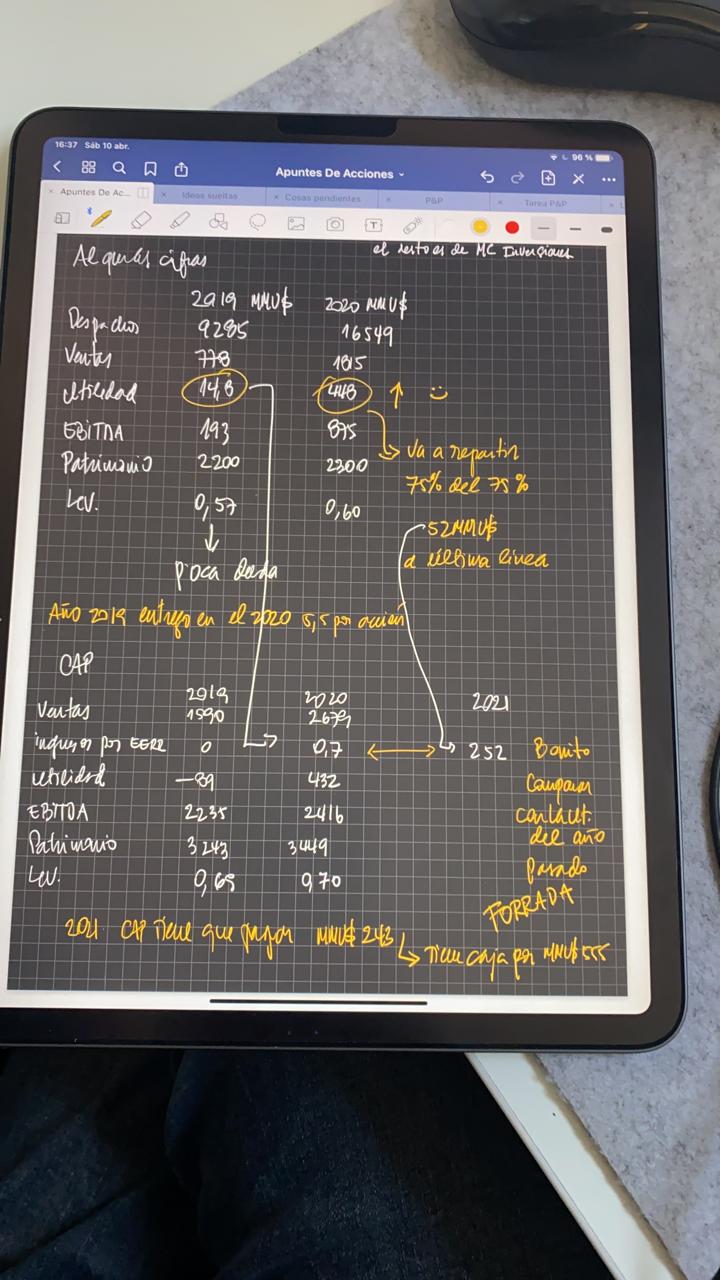 16:37 Sáb 10 abr.
96 %
Apuntes De Acciones
Apuntes De Ac...
Ideas sueltas
Cosas pendientes
P&P
Tarea P&P
el resto es de MC Inversiones
Algunas cifras
2019 MMU$ 2020 MMU$
Despachos 9285 16549
Ventas 778 1815
Utilidad 14,8 448
EBITDA 193 875
Patrimonio 2200 2300
Lev. 0,57 0,60
Va a repartir
75% del 75%
52MMU$
a última línea
poca deuda
Año 2019 entregó en el 2020 5,5 por acción
CAP
2019 2020 2021
Ventas 1590 2679
ingresos por EERR 0 0,7 252 Bonito
utilidad -89 432 Comparar
EBITDA 2235 2416 con la ut.
del año
Patrimonio 3243 3449 pasado
Lev. 0,65 0,70
FORRADA
2021 CAP tiene que pagar MMU$ 243
Tiene caja por MMU$ 555